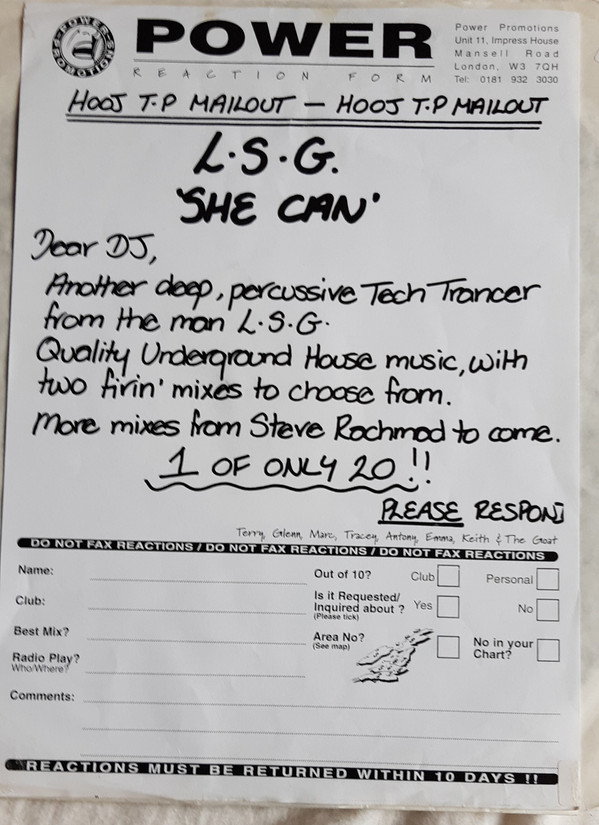 POWER PROMOTIONS
POWER
REACTION FORM
Power Promotions
Unit 11, Impress House
Mansell Road
London, W3 7QH
Tel: 0181 932 3030
HOOJ T.P MAILOUT — HOOJ T.P MAILOUT
L.S.G.
'SHE CAN'
Dear DJ,
Another deep, percussive Tech Trancer
from the man L.S.G.
Quality Underground House music, with
two firin' mixes to choose from.
More mixes from Steve Rachmad to come.
1 OF ONLY 20!!
PLEASE RESPOND
Terry, Glenn, Marc, Tracey, Antony, Emma, Keith & The Goat
DO NOT FAX REACTIONS / DO NOT FAX REACTIONS / DO NOT FAX REACTIONS
Name:
Club:
Best Mix?
Radio Play?
Who/Where?
Out of 10? Club Personal
Is it Requested/
Inquired about ? Yes No
(Please tick)
Area No?
(See map)
No in your
Chart?
Comments:
REACTIONS MUST BE RETURNED WITHIN 10 DAYS !!